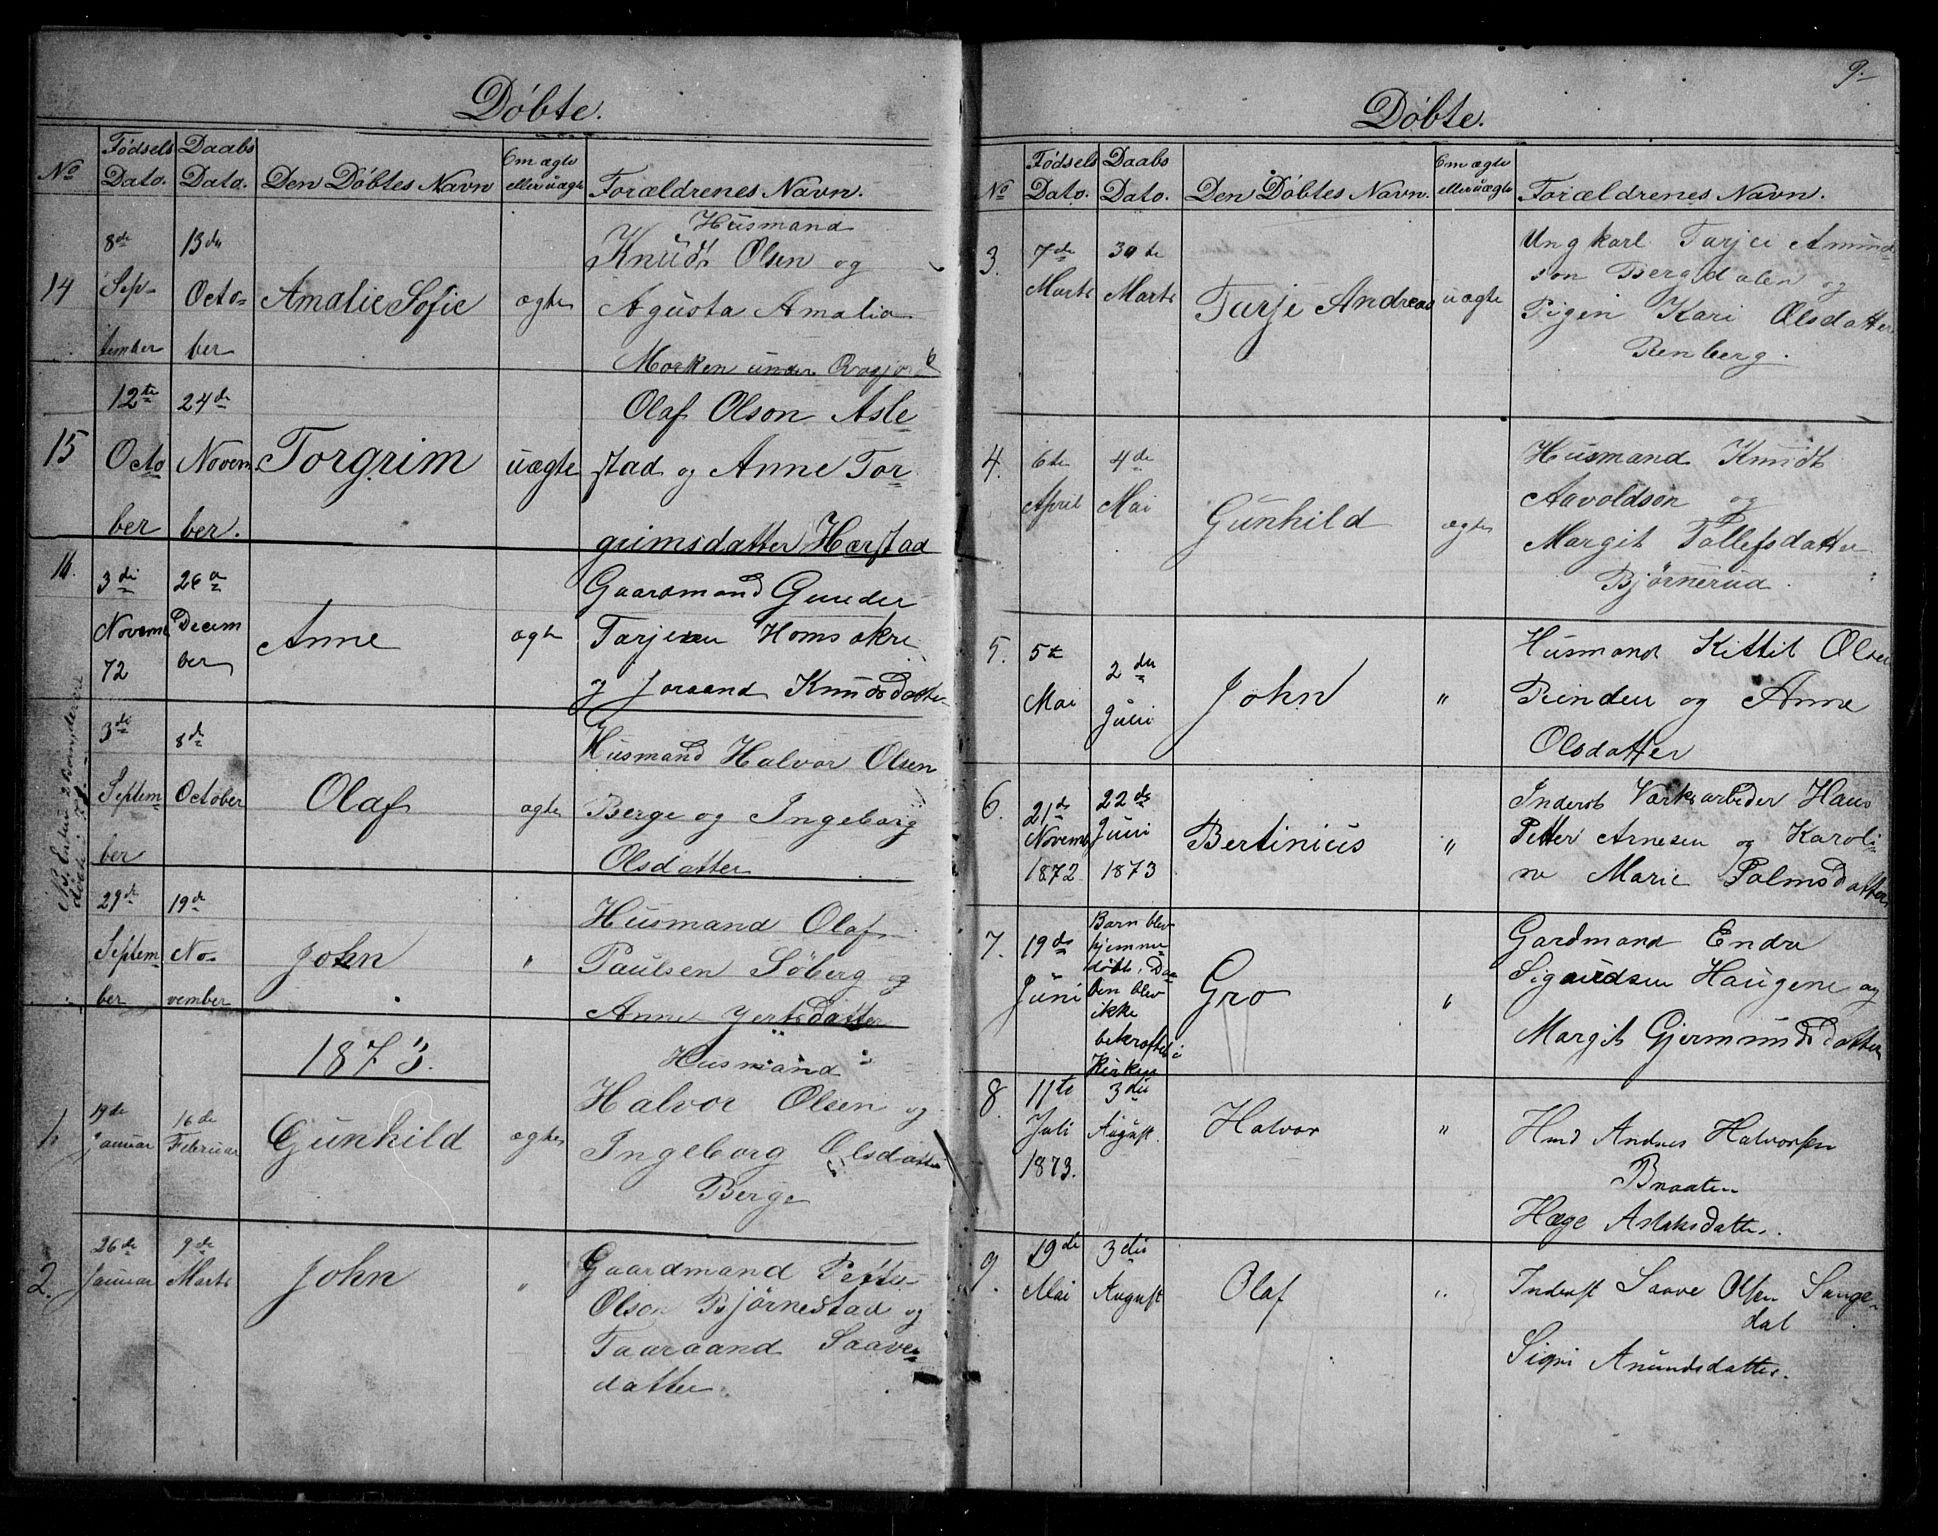 Døbte.
No
Fødsels Dato.
Daabs Dato.
Den Døbtes Navn
Om ægte eller uægte
Forældrenes Navn.
14
8de September
13de October
Amalie Sofie
ægte
Husmand
Knudt Olsen og
Agusta Amalia
Moeken under
15
12te October
24de November.
Torgrim
uægte
Olaf Olson Asle
stad og Anne Tor
grimsdatter Harstad
16.
3di Novemb 72
26de December
Anne
ægte
Gaardmand Gunder
Tarjesen Homsakre
og Joraand Knudsdatter
3di September
8de October
Olaf
ægte
Husmand Halvor Olsen
Berge og Ingeborg
Olsdatter
29de September
19de November
John
"
Husmand Olaf
Paulsen Söberg og
Anne Gertsdatter
1873.
1.
19de Januar
16de Februar
Gunhild
ægte
Husmand
Halvor Olsen og
Ingeborg Olsdatter
Berge
2.
26de Januar
9de Marts
John
"
Gaardmand Petter
Olson Bjørnestad og
Taaraand Saave
datter.
9.
Døbte.
No
Fødsels Dato.
Daabs Dato.
Den Døbtes Navn.
Om ægte eller uægte
Forældrenes Navn.
3.
7de Marts
30te Marts
Tarje Andreas
uægte
Ungkarl Tarjei Amund
son Bergsdalen og
Pigen Kari Olsdatter
Renberg.
4.
6te April
4de Mai
Gunhild
ægte
Husmand Knudt
Aavoldson og
Margit Tollefsdatter
Bjørnerud.
5.
5te Mai
2den Juni
John
"
Husmand Kittil Olsen
Rinden og Anne
Olsdatter
6.
21de Novemb 1872
22de Juni 1873
Bertinius
"
Inderst Værksarbeder Hans
Petter Arnesen og Karoli
ne Marie Palmsdatter
7.
19de Juni
Barn blev
hjemme
døbt, Daa
ben blev
ikke
bekræftet i
Kirken
Gro
"
Gardmand Endre
Sigurdsen Haugene og
Margit Gjermundsdatter
8.
11te Juli 1873.
3die August.
Halvor
"
Hmd Andres Halvorsen
Braaten
Hæge Aslaksdatter.
9.
19de Mai
3die August
Olaf
"
Inderst Saave Olsen Lange-
dal
Signi Anundsdatter.